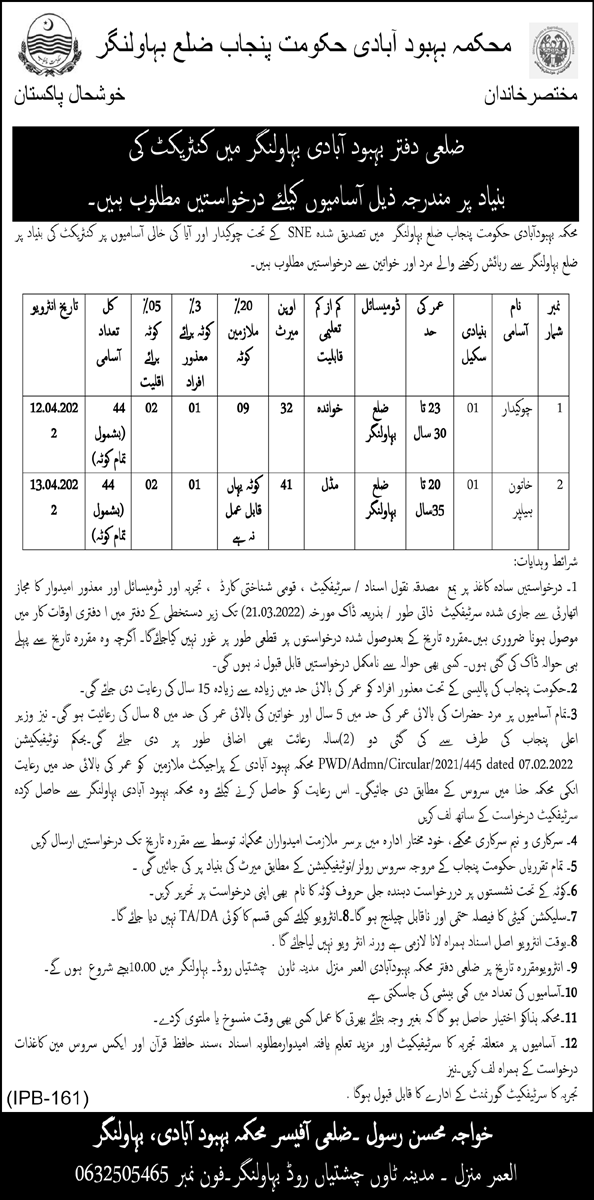 محکمہ بہبود آبادی حکومت پنجاب ضلع بہاولنگر
مختصر خاندان
خوشحال پاکستان
ضلعی دفتر بہبود آبادی بہاولنگر میں کنٹریکٹ کی
بنیاد پر مندرجہ ذیل آسامیوں کیلئے درخواستیں مطلوب ہیں۔
محکمہ بہبود آبادی حکومت پنجاب ضلع بہاولنگر میں تصدیق شدہ SNE کے تحت چوکیدار اور آیا کی خالی آسامیوں پر کنٹریکٹ کی بنیاد پر
ضلع بہاولنگر سے رہائش رکھنے والے مرد اور خواتین سے درخواستیں مطلوب ہیں۔
نمبر شمار | نام آسامی | بنیادی سکیل | عمر کی حد | ڈومیسائل | کم از کم تعلیمی قابلیت | اوپن میرٹ | 20٪ ملازمین کوٹہ | 3٪ کوٹہ برائے معذور افراد | 05٪ کوٹہ برائے اقلیت | کل تعداد آسامی | تاریخ انٹرویو
1 | چوکیدار | 01 | 23 تا 30 سال | ضلع بہاولنگر | خواندہ | 32 | 09 | 01 | 02 | 44 (بشمول تمام کوٹہ) | 12.04.2022
2 | خاتون ہیلپر | 01 | 20 تا 35سال | ضلع بہاولنگر | مڈل | 41 | کوٹہ یہاں قابل عمل نہ ہے | 01 | 02 | 44 (بشمول تمام کوٹہ) | 13.04.2022
شرائط وہدایات:
1۔ درخواستیں سادہ کاغذ پر بمع مصدقہ نقول اسناد / سرٹیفکیٹ ، قومی شناختی کارڈ ، تجربہ اور ڈومیسائل اور معذور امیدوار کا مجاز
اتھارٹی سے جاری شدہ سرٹیفکیٹ ذاتی طور / بذریعہ ڈاک مورخہ (21.03.2022) تک زیر دستخطی کے دفتر میں ا دفتری اوقات کار میں
موصول ہونا ضروری ہیں۔مقررہ تاریخ کے بعدوصول شدہ درخواستوں پر قطعی طور پر غور نہیں کیاجائےگا۔ اگرچہ وہ مقررہ تاریخ سے پہلے
ہی حوالہ ڈاک کی گئی ہوں۔ کسی بھی حوالہ سے نامکمل درخواستیں قابل قبول نہ ہوں گی۔
2۔حکومت پنجاب کی پالیسی کے تحت معذور افراد کو عمر کی بالائی حد میں زیادہ سے زیادہ 15 سال کی رعایت دی جائے گی۔
3۔تمام آسامیوں پر مرد حضرات کی بالائی عمر کی حد میں 5 سال اور خواتین کی بالائی عمر کی حد میں 8 سال کی رعائیت ہو گی۔ نیز وزیر
اعلی پنجاب کی طرف سے کی گئی دو (2)سالہ رعائت بھی اضافی طور پر دی جائے گی۔بحکم نوٹیفیکیشن
PWD/Admn/Circular/2021/445 dated 07.02.2022 محکمہ بہبود آبادی کے پراجیکٹ ملازمین کو عمر کی بالائی حد میں رعایت
انکی محکمہ حذا میں سروس کے مطابق دی جائیگی۔ اس رعایت کو حاصل کرنے کیلئے وہ محکمہ بہبود آبادی بہاولنگر سے حاصل کردہ
سرٹیفکیٹ درخواست کے ساتھ لف کریں
4۔ سرکاری و نیم سرکاری محکمے، خود مختار ادارہ میں برسر ملازمت امیدواران محکمانہ توسط سے مقررہ تاریخ تک درخواستیں ارسال کریں
5۔ تمام تقرریاں حکومت پنجاب کے مروجہ سروس رولز/نوٹیفیکیشن کے مطابق میرٹ کی بنیاد پر کی جائیں گی ۔
6۔کوٹہ کے تحت نشستوں پر درخواست دہندہ جلی حروف کوٹہ کا نام بھی اپنی درخواست پر تحریر کریں۔
7۔سلیکشن کمیٹی کا فیصلہ حتمی اور ناقابل چیلنج ہو گا۔8۔انٹرویو کیلئے کسی قسم کا کوئی TA/DA نہیں دیا جائے گا۔
8۔بوقت انٹرویو اصل اسناد ہمراہ لانا لازمی ہے ورنہ انٹر ویو نہیں لیا جائے گا .
9۔ انٹرویومقررہ تاریخ پر ضلعی دفتر محکمہ بہبود آبادی العمر منزل مدینہ ٹاون چشتیاں روڈ۔ بہاولنگر میں 10.00بجے شروع ہوں گے۔
10۔آسامیوں کی تعداد میں کمی بیشی کی جاسکتی ہے
11۔محکمہ ہذا کو اختیار حاصل ہو گا کہ بغیر وجہ بتائے بھرتی کا عمل کسی بھی وقت منسوخ یا ملتوی کر دے۔
12۔ آسامیوں پر متعلقہ تجربہ کا سرٹیفیکیٹ اور مزید تعلیم یافتہ امیدوار مطلوبہ اسناد ،سند حافظ قرآن اور ایکس سروس مین کاغذات
درخواست کے ہمراہ لف کریں۔نیز
تجربہ کا سرٹیفکیٹ گورنمنٹ کے ادارے کا قابل قبول ہوگا .
(IPB-161)
خواجہ محسن رسول ۔ضلعی آفیسر محکمہ بہبود آبادی، بہاولنگر
العمر منزل ۔ مدینہ ٹاون چشتیاں روڈ بہاولنگر۔فون نمبر 0632505465